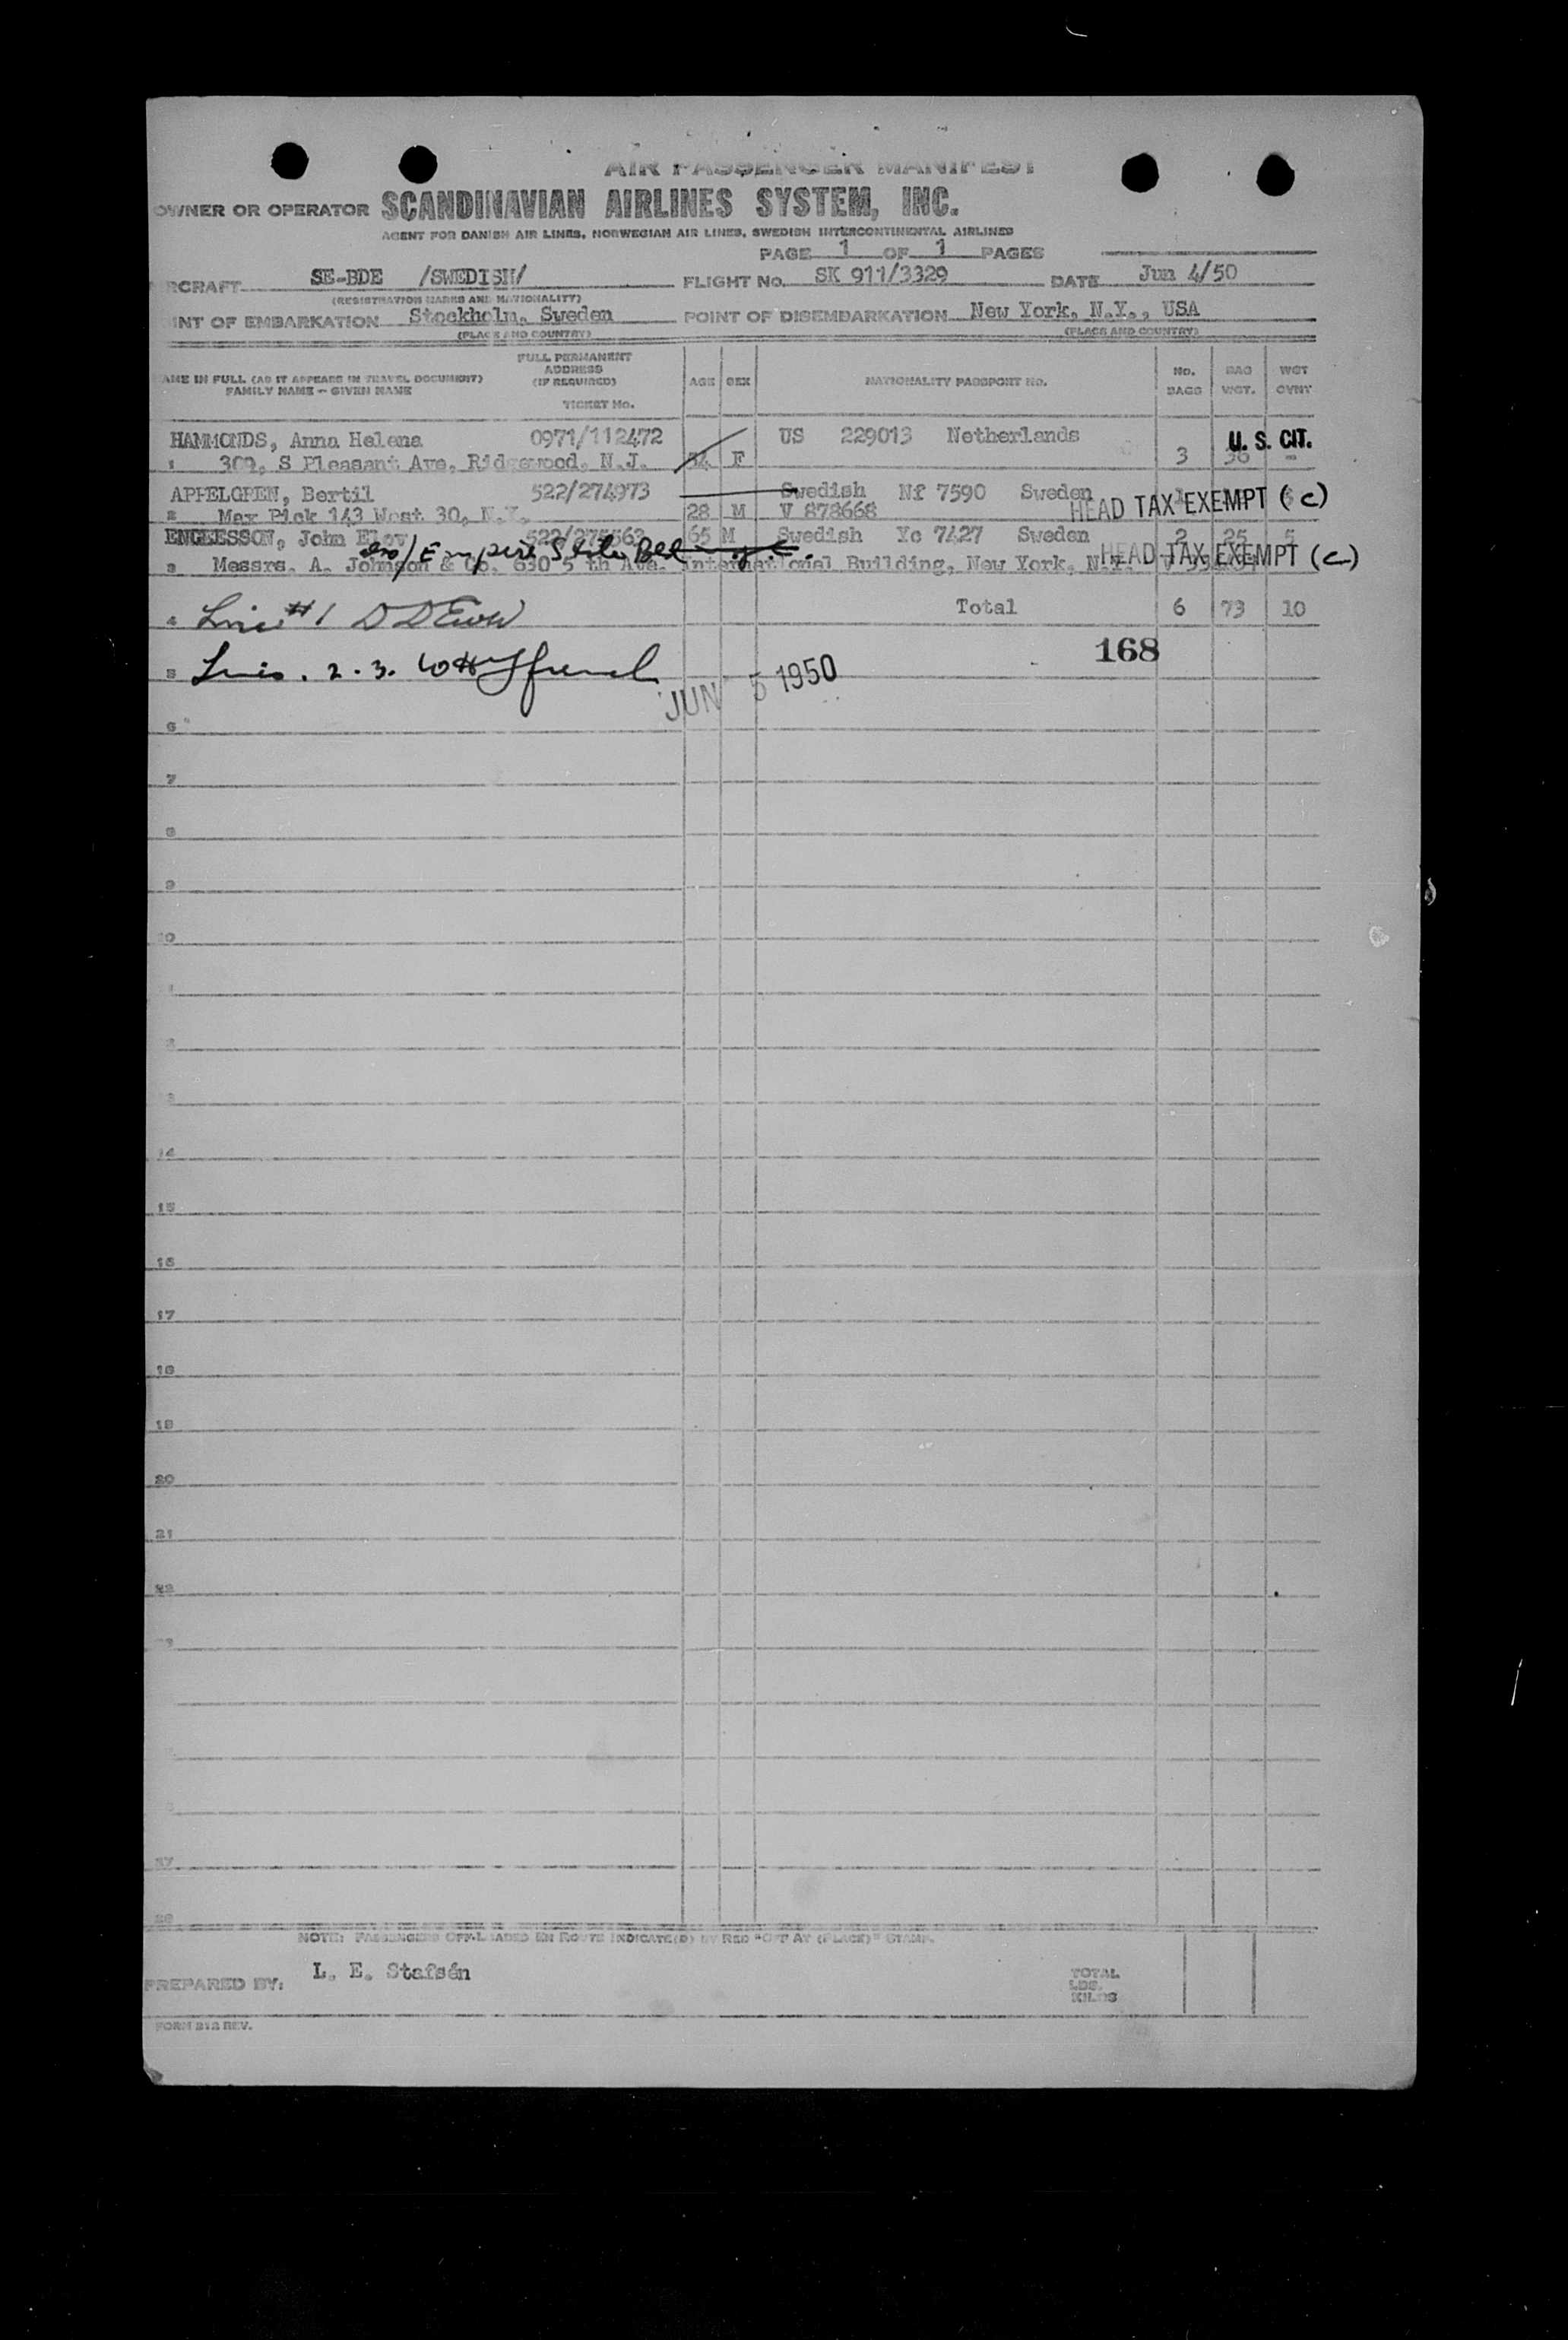 AIR PASSENGER MANIFEST
OWNER OR OPERATOR SCANDINAVIAN AIRLINES SYSTEM, INC.
AGENT FOR DANISH AIR LINES, NORWEGIAN AIR LINES, SWEDISH INTERCONTINENTAL AIRLINES
PAGE 1 OF 1 PAGES
RCRAFT SE-BDE /SWEDISH/ FLIGHT No. SK 911/3329 DATE Jun 4/50
(REGISTRATION MARKS AND NATIONALITY)
INT OF EMBARKATION Stockholm, Sweden POINT OF DISEMBARKATION New York, N.Y., USA
(PLACE AND COUNTRY) (PLACE AND COUNTRY)
AME IN FULL (AS IT APPEARS IN TRAVEL DOCUMENT) FAMILY NAME – GIVEN NAME
FULL PERMANENT ADDRESS (IF REQUIRED) TICKET No.
AGE SEX NATIONALITY PASSPORT NO. No. BAGS BAG WGT. WGT OVWT
HAMMONDS, Anna Helena 0971/112472 US 229013 Netherlands U. S. CIT.
1 309, S Pleasant Ave, Ridgewood, N.J. 34 F 3 36 -
APPELGREN, Bertil 522/274973 Swedish Nf 7590 Sweden 1 HEAD TAX EXEMPT (C)
2 Max Pick 143 West 30, N.Y. 28 M V 878668
ENGLESSON, John Eloy 65 M Swedish Yc 7427 Sweden 2 25 5
Empire State HEAD TAX EXEMPT (C)
3 Messrs. A. Johnson & Co. 630 5 th Ave. International Building, New York, N.Y.
4 Line #1 Total 6 73 10
168
5 Lines. 2. 3.
JUN 5 1950
6
7
8
9
10
1
2
3
14
15
16
17
18
19
20
21
22
27
28
NOTE: PASSENGERS OFF-LOADED EN ROUTE INDICATE(D) BY RED "OFF AT (PLACE)" STAMP.
PREPARED BY: L. E. Stafsén TOTAL LBS. KILOS
FORM 212 REV.